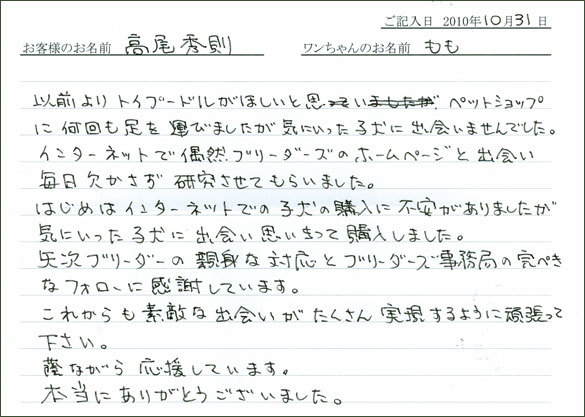 ご記入日 2010年10月31日
お客様のお名前 高尾秀則 ワンちゃんのお名前 もも
以前よりトイプードルがほしいと思っていましたが ペットショップ
に何回も足を運びましたが気にいった子犬に出会いませんでした。
インターネットで偶然ブリーダーズのホームページと出会い
毎日欠かさず研究させてもらいました。
はじめはインターネットでの子犬の購入に不安がありましたが
気にいった子犬に出会い思いきって購入しました。
矢次ブリーダーの親身な対応とブリーダーズ事務局の完ぺき
なフォローに感謝しています。
これからも素敵な出会いがたくさん実現するように頑張って
下さい。
蔭ながら応援しています。
本当にありがとうございました。